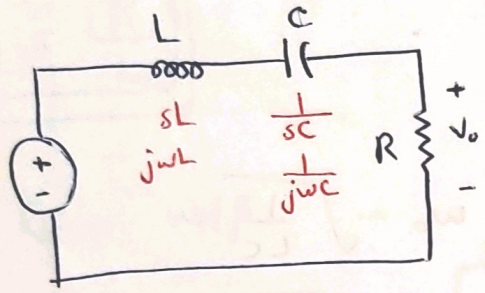 L
C
sL
1/sC
jωL
1/jωC
R
+
Vo
-
+
-